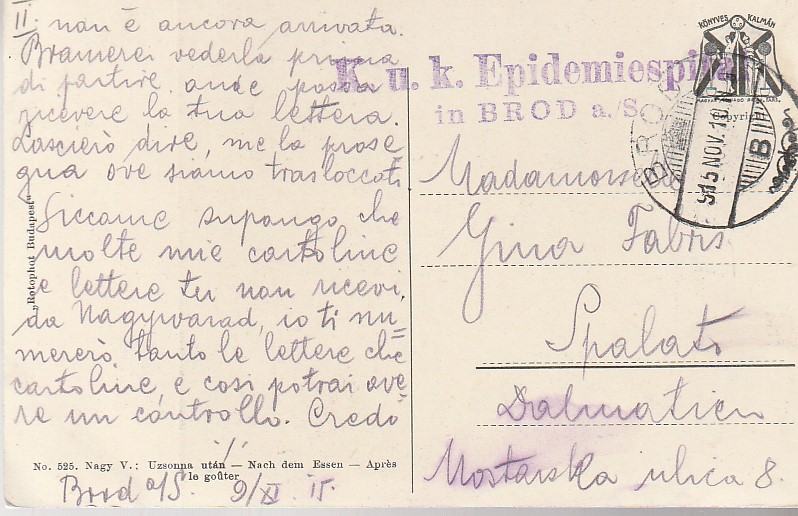 II non è ancora arrivata.
Bramerei vederla prima
di partire onde possa
ricevere la tua lettera.
Lascierò dire, me la prose
gua ove siamo traslocati
Siccome supongo che
molte mie cartoline
e lettere tu non ricevi,
da Nagyvarad, io ti nu=
mererò tanto le lettere che
cartoline, e così potrai ave=
re un controllo. Credo
./.
No. 525. Nagy V.: Uzsonna után — Nach dem Essen — Après
le goûter
Brod a/S. 9/XI 15.
„Rotophot Budapest“
KÖNYVES KALMÁN
Copyright
K. u. k. Epidemiespital
in BROD a./S.
BROD
915 NOV. 1
B
Madamoiselle
Gina Fabris
Spalato
Dalmatien
Mostarska ulica 8.